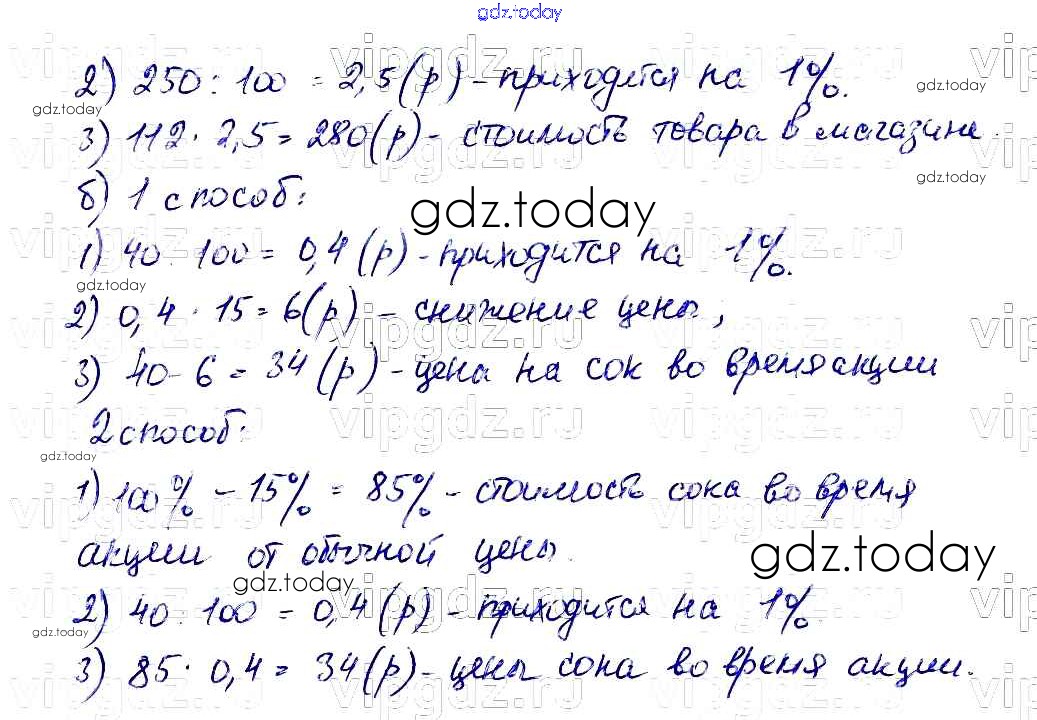 gdz.today
2) 250 : 100 = 2,5 (р) - приходится на 1%.
3) 112 · 2,5 = 280 (р) - стоимость товара в магазине.
б) 1 способ:
gdz.today
1) 40 : 100 = 0,4 (р) - приходится на 1%.
2) 0,4 · 15 = 6 (р) - снижение цены,
3) 40 - 6 = 34 (р) - цена на сок во время акции
2 способ:
1) 100% - 15% = 85% - стоимость сока во время
акции от обычной цены.
gdz.today
gdz.today
2) 40 : 100 = 0,4 (р) - приходится на 1%.
3) 85 · 0,4 = 34 (р) - цены сока во время акции.